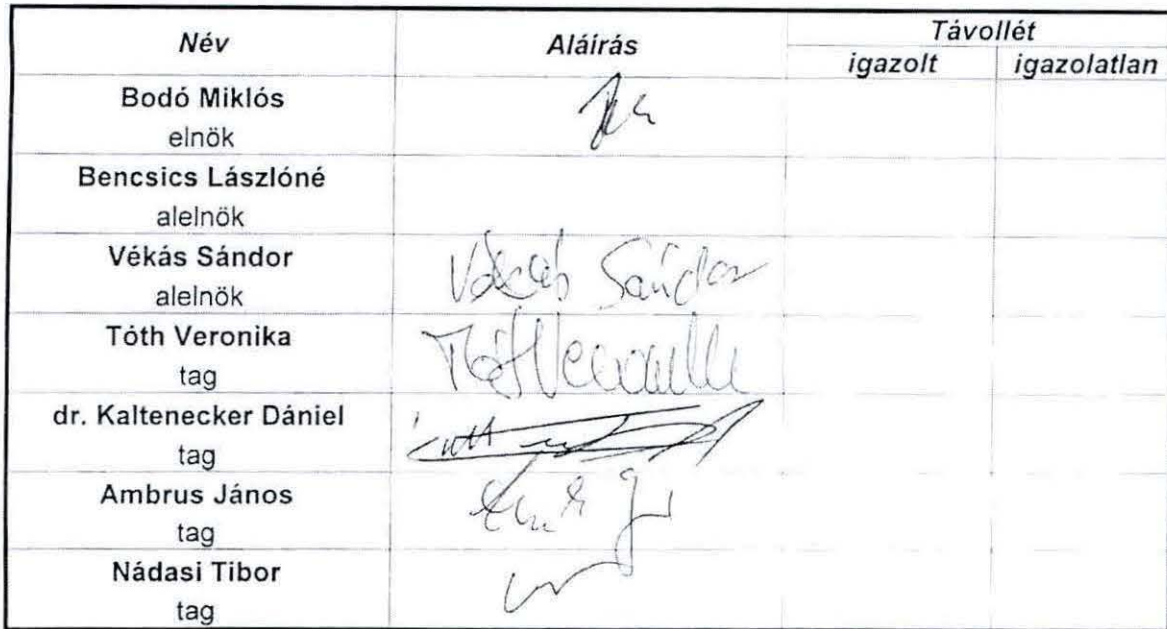 Név Aláírás Távollét
igazolt igazolatlan
Bodó Miklós
elnök
Bencsics Lászlóné
alelnök
Vékás Sándor Vékás Sándor
alelnök
Tóth Veronika Tóth Veronika
tag
dr. Kaltenecker Dániel
tag
Ambrus János
tag
Nádasi Tibor
tag